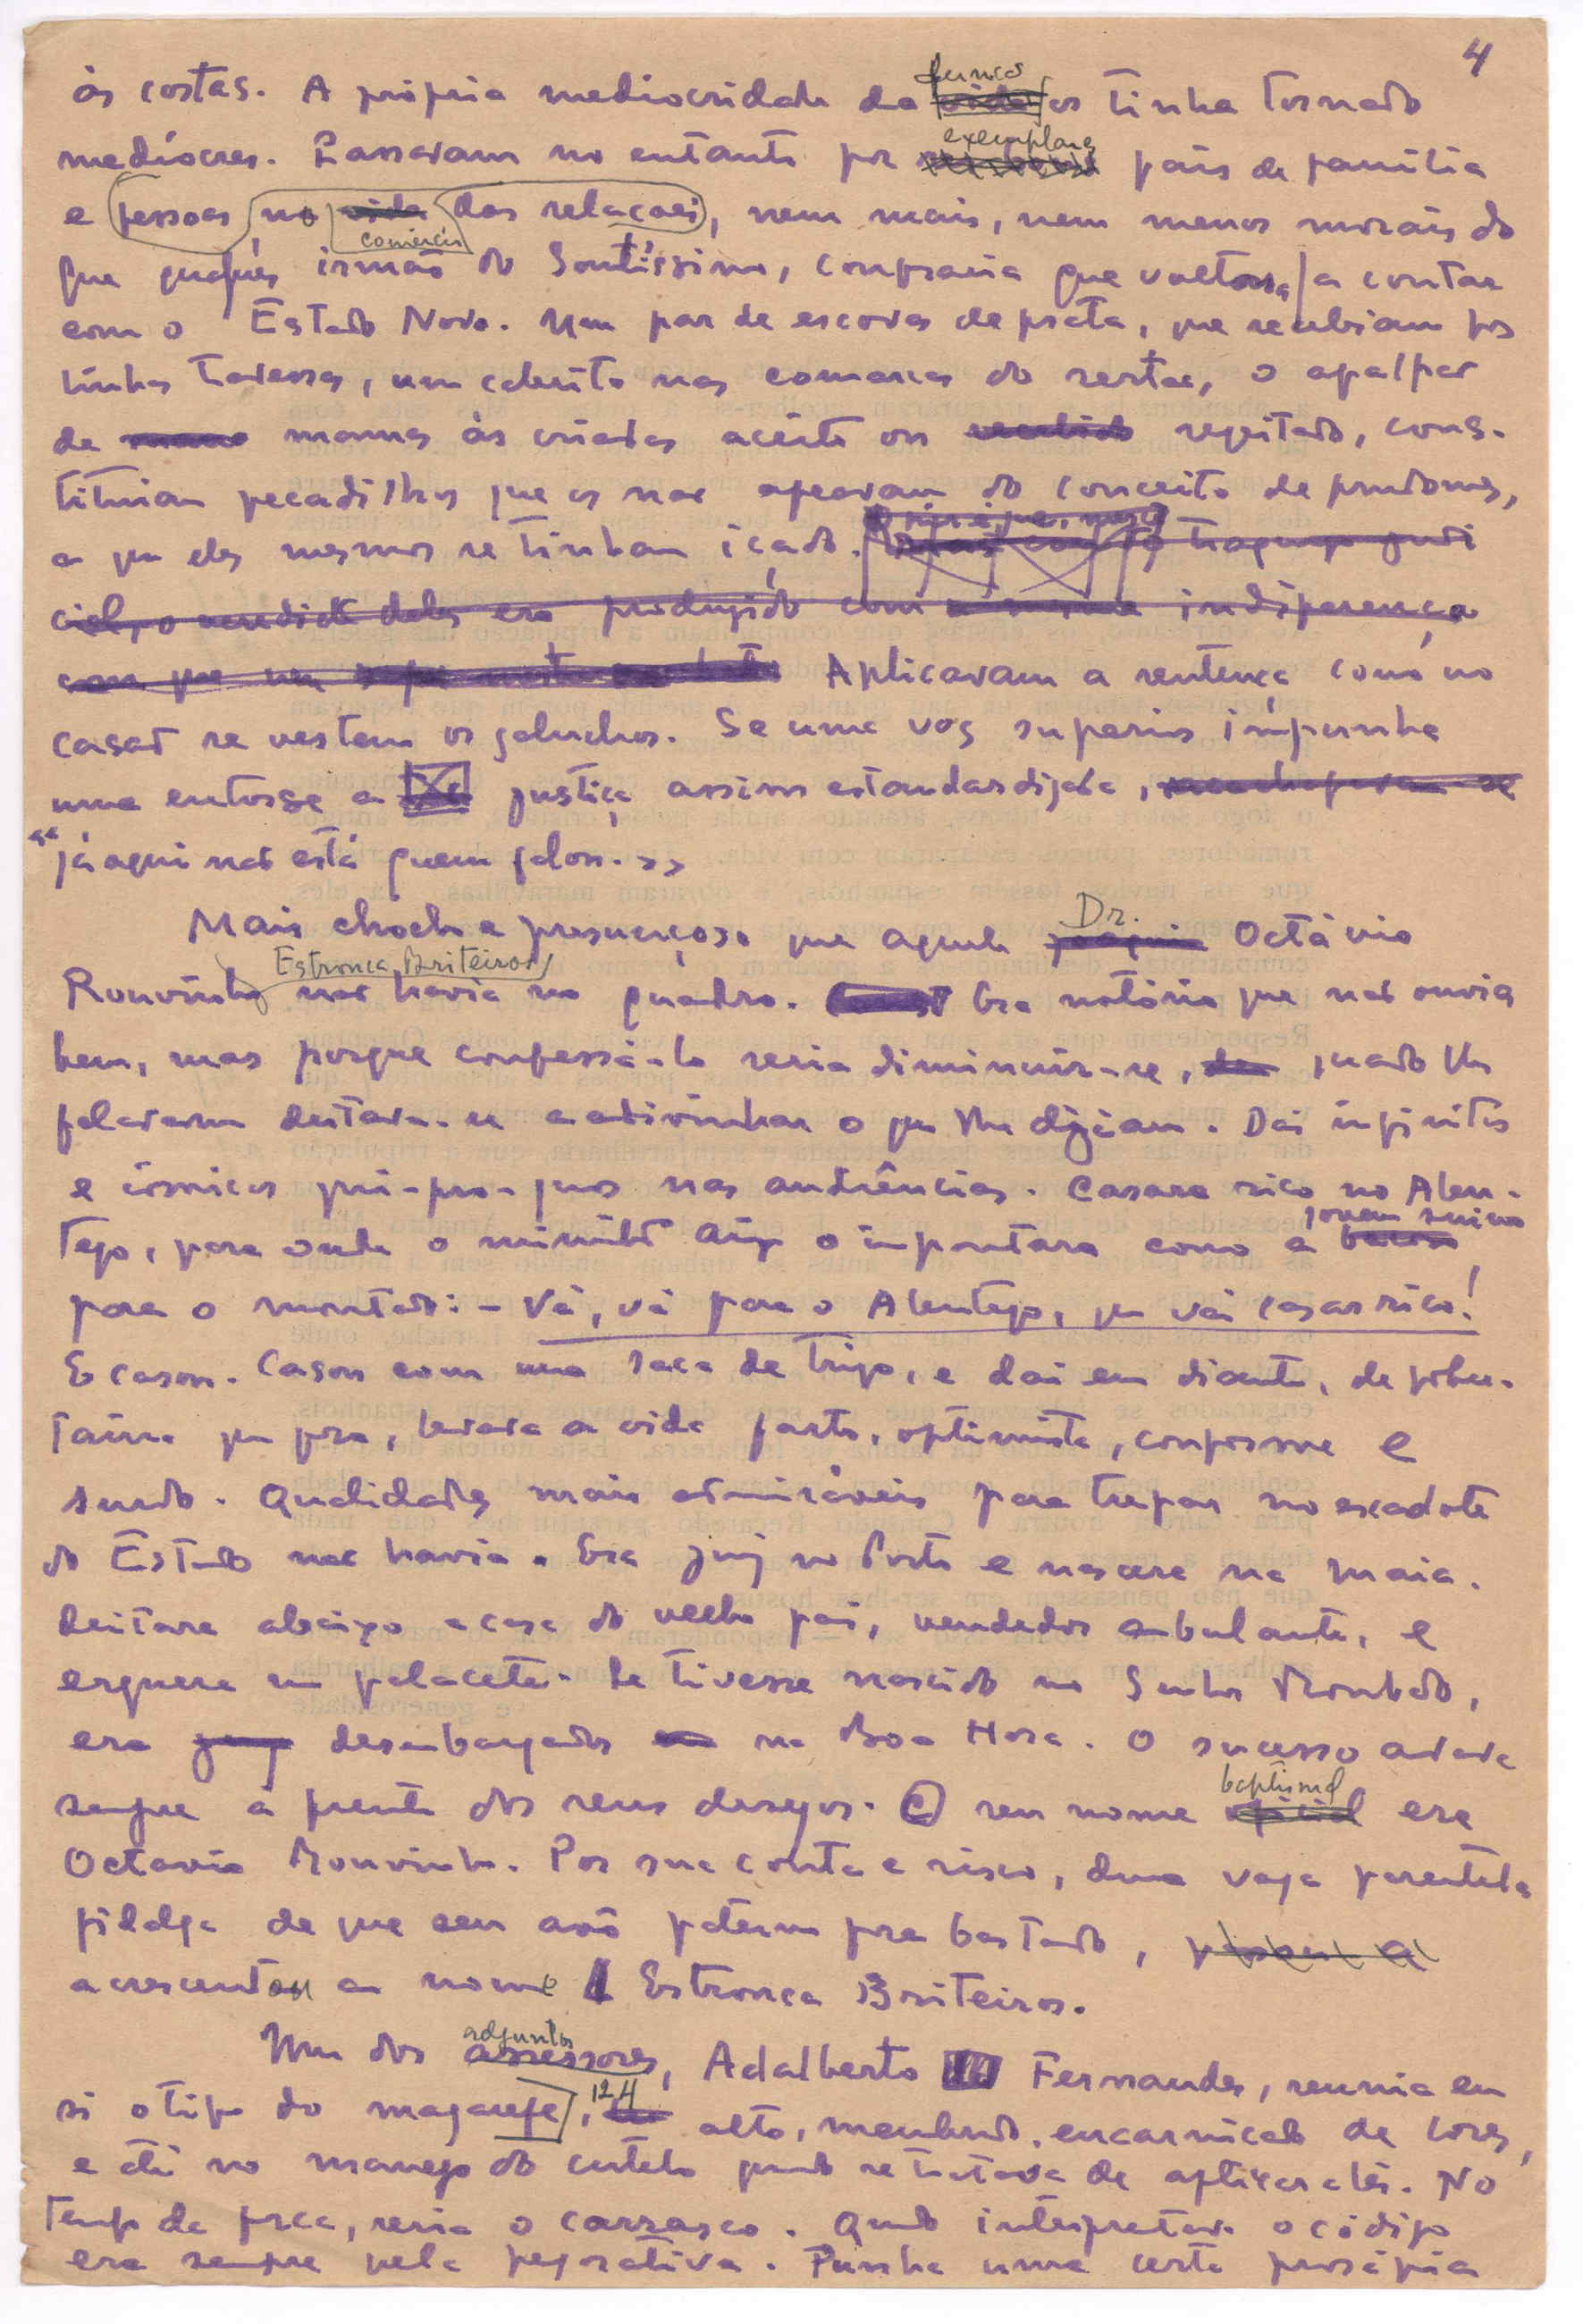 4
às costas. A própria mediocridade da os tinha tornado
exemplares
medíocres. Passavam no entanto por pais de família
e pessoas, no vida das relações, nem mais, nem menos morais do
comércio
que qualquer irmão do Santíssimo, confraria que voltou a contar
com o Estado Novo. Um par de escovas de prata, que recebiam por
linhas travessas, um cabrito nas comarcas do sertão, o apalpar
de mamas às criadas aceite ou repitado, cons-
tituiam pecadilhos que os não apeavam do conceito de prudomes,
a que eles mesmos se tinham içado.
cial, o veredicto deles era produzido com a mesma indiferença
com que um Aplicavam a sentença como no
casão se vestem os galuchos. Se uma voz superior impunha
uma entorse a justiça assim estandardizada,
«já aqui não está quem falou.»
Dr.
Mais chocho e presunçoso que aquele Octávio
Estronca Briteiros
Rouvinho não havia no quadro. Era notório que não ouvia
bem, mas porque confessá-lo seria diminuir-se, quando lhe
falavam deitava-se a adivinhar o que lhe diziam. Daí infinitos
e cómicos qui-pro-quos nas audiências. Casara rico no Alen-
jovem suino
tejo, para onde o ministro o importara como a bácoro
para o montado: - Vá, vá para o Alentejo, que vai casar rico!
E casou. Casou com uma saca de trigo, e daí em diante, de pobre-
tana que fora, levava a vida farta, optimista, conforme e
surdo. Qualidades mais admiráveis para trepar no escadote
do Estado não havia. Era juiz no Porto e nascera na Maia.
Deitara abaixo a casa do velho pai, vendedor ambulante, e
erguera um palacete. Se tivesse nascido no Senhor Roubado,
era juiz desembargador na Boa Hora. O sucesso andava
baptismal
sempre à frente dos seus desejos. O seu nome oficial era
Octavio Rouvinho. Por sua conta e risco, duma vaga parentela
fidalga de que seu avô paterno fora bastardo,
acrescentou ao nome Estronca Briteiros.
adjuntos
Um dos assessores, Adalberto Fernandes, reunia em
124
si o tipo do magarefe, alto, membrudo, encarniçado de cores,
e até no manejo do cutelo quando se tratava de aplicar a lei. No
tempo da forca, seria o carrasco. Quando interpretava o código
era sempre pela pejorativa. Punha uma certa prosápia